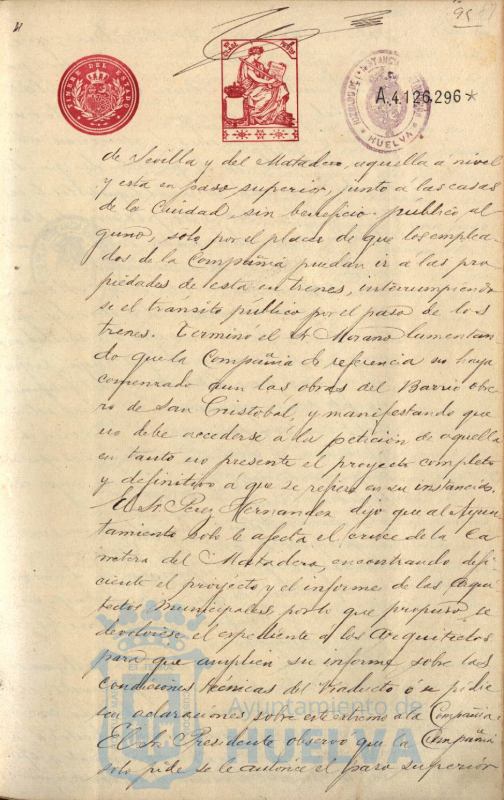 95
TIMBRE DEL ESTADO
A.4.126,296*
HUELVA
de Sevilla y del Matadero, aquella á nivel
y esta en paso superior, junto a las casas
de la Ciudad, sin beneficio público al
guno, solo por el placer de que los emplea
dos de la Compañia puedan ir á las pro
piedades de esta en trenes, interrumpiendo
se el tránsito público por el paso de los
trenes. Terminó el Sr. Morano lamentan
do que la Compañia de referencia no haya
comenzado aun las obras del Barrio obre
ro de San Cristobal, y manifestando que
no debe accederse á la petición de aquella
en tanto no presente el proyecto completo
y definitivo a que se refiere en su instancia.
El Sr. Perez Hernandez dijo que al Ayun
tamiento solo le afecta el cruce de la Ca
rretera del Matadero, encontrando defi
ciente el proyecto y el informe de los Arqui
tectos municipales por lo que propuso se
devolviese el expediente a los Arquitectos
para que amplien su informe sobre las
condiciones técnicas del Viaducto ó se pidie
sen aclaraciones sobre este extremo a la Compañia.
El Sr. Presidente observó que la Compañia
solo pide se le autorice el paso superior
Ayuntamiento de
HUELVA